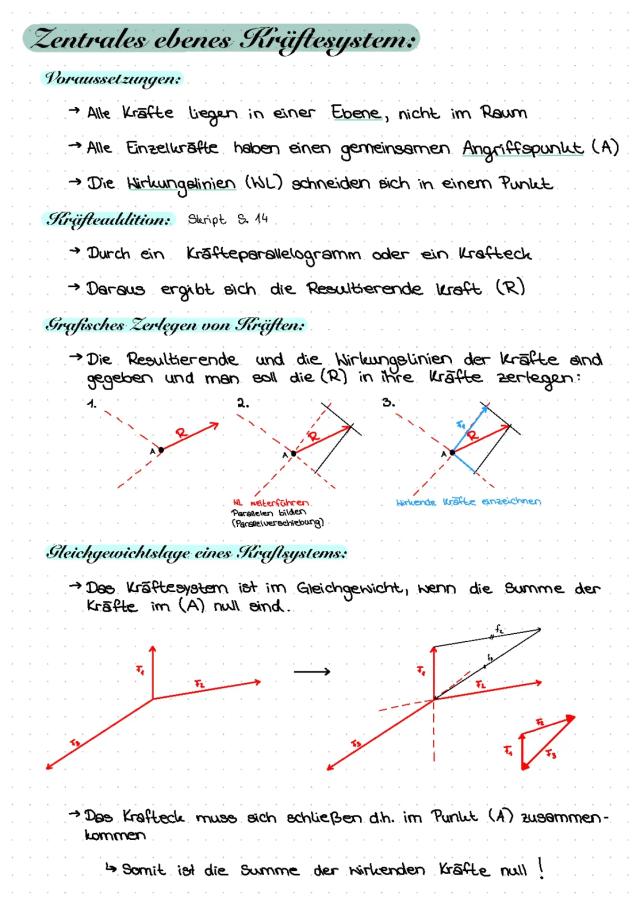 Zentrales ebenes Kräftesystem:
Voraussetzungen:
→ Alle Kräfte liegen in einer Ebene, nicht im Raum
→ Alle Einzelkräfte haben einen gemeinsamen Angriffspunkt (A)
→ Die Wirkungslinien (WL) schneiden sich in einem Punkt
Kräfteaddition: Skript S. 14
→ Durch ein Kräfteparallelogramm oder ein Krafteck
→ Daraus ergibt sich die Resultierende Kraft (R)
Grafisches Zerlegen von Kräften:
→ Die Resultierende und die Wirkungslinien der Kräfte sind
gegeben und man soll die (R) in ihre Kräfte zerlegen:
1.
A
R
2.
A
R
WL weiterführen
Parallelen bilden
(Parallelverschiebung)
3.
F1
A
R
Wirkende Kräfte einzeichnen
Gleichgewichtslage eines Kraftsystems:
→ Das Kräftesystem ist im Gleichgewicht, wenn die Summe der
Kräfte im (A) null sind.
F1
F2
F3
→
F1
f2
f3
F2
F3
F1
F2
F3
→ Das Krafteck muss sich schließen d.h. im Punkt (A) zusammen-
kommen
↳ Somit ist die Summe der wirkenden Kräfte null !